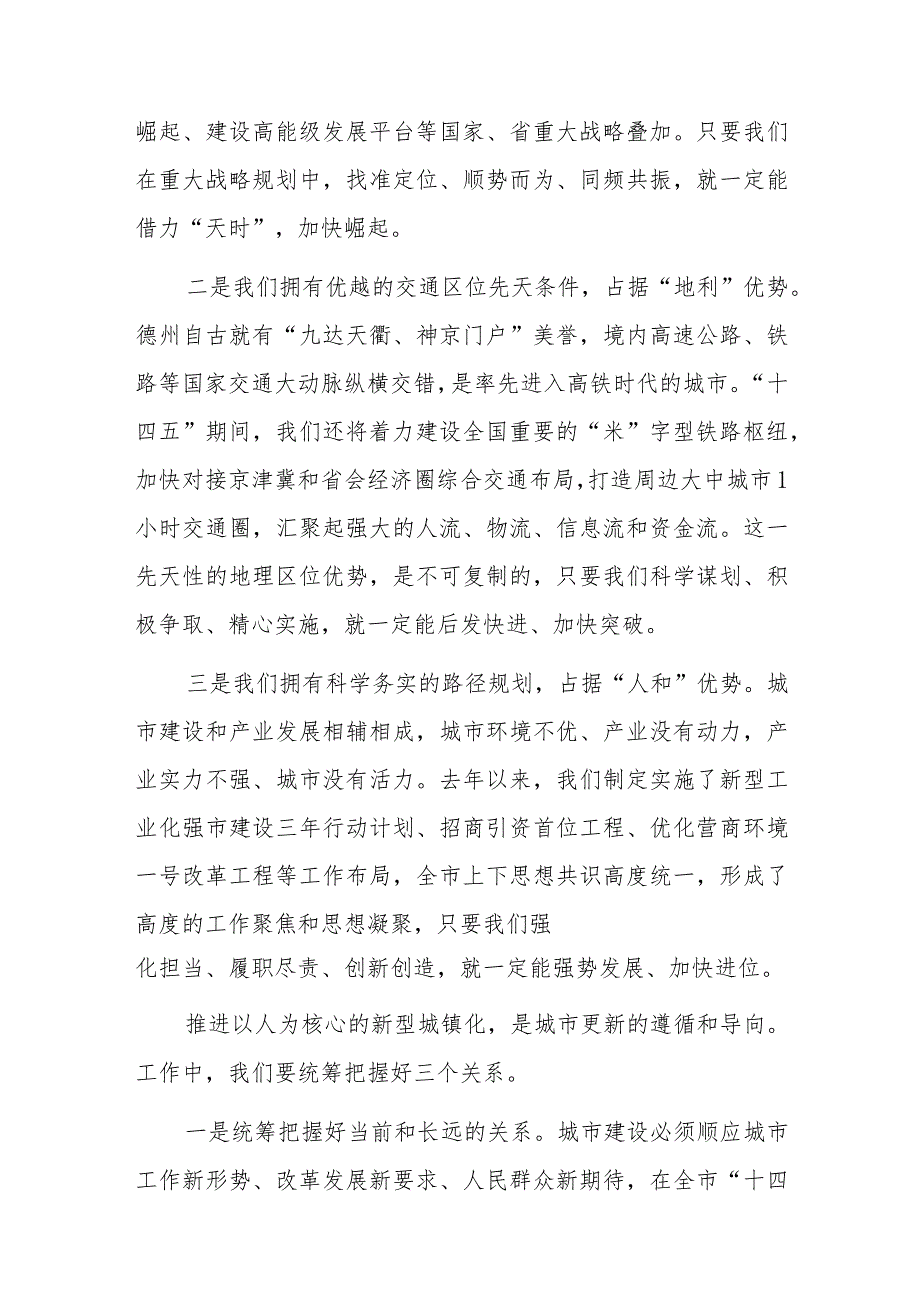 崛起、建设高能级发展平台等国家、省重大战略叠加。只要我们
在重大战略规划中，找准定位、顺势而为、同频共振，就一定能
借力“天时”，加快崛起。
二是我们拥有优越的交通区位先天条件，占据“地利”优势。
德州自古就有“九达天衢、神京门户”美誉，境内高速公路、铁
路等国家交通大动脉纵横交错，是率先进入高铁时代的城市。“十
四五”期间，我们还将着力建设全国重要的“米”字型铁路枢纽，
加快对接京津冀和省会经济圈综合交通布局，打造周边大中城市1
小时交通圈，汇聚起强大的人流、物流、信息流和资金流。这一
先天性的地理区位优势，是不可复制的，只要我们科学谋划、积
极争取、精心实施，就一定能后发快进、加快突破。
三是我们拥有科学务实的路径规划，占据“人和”优势。城
市建设和产业发展相辅相成，城市环境不优、产业没有动力，产
业实力不强、城市没有活力。去年以来，我们制定实施了新型工
业化强市建设三年行动计划、招商引资首位工程、优化营商环境
一号改革工程等工作布局，全市上下思想共识高度统一，形成了
高度的工作聚焦和思想凝聚，只要我们强
化担当、履职尽责、创新创造，就一定能强势发展、加快进位。
推进以人为核心的新型城镇化，是城市更新的遵循和导向。
工作中，我们要统筹把握好三个关系。
一是统筹把握好当前和长远的关系。城市建设必须顺应城市
工作新形势、改革发展新要求、人民群众新期待，在全市“十四